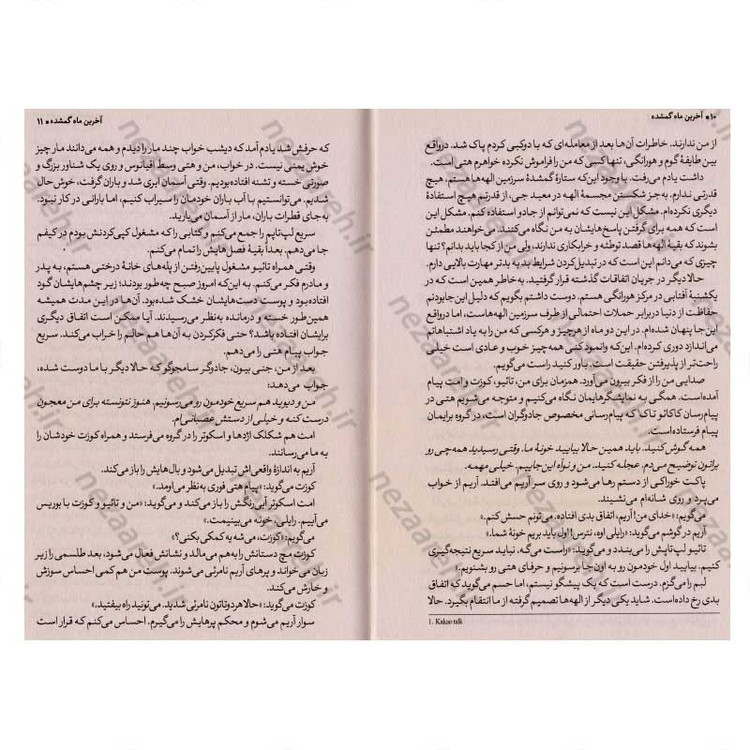 ۱۰ • آخرین ماه گمشده
از من ندارند. خاطرات آن‌ها بعد از معامله‌ای که با دوکبی کردم پاک شد. درواقع
بین طایفهٔ گوم و هورانگی، تنها کسی که من را فراموش نکرده خواهرم هتی است.
داشت یادم می‌رفت. با وجود این‌که ستارهٔ گمشدهٔ سرزمین الهه‌ها هستم، هیچ
قدرتی ندارم. به‌جز شکستن مجسمهٔ الهه در معبد جی، از قدرتم هیچ استفادهٔ
دیگری نکرده‌ام. مشکل این نیست که نمی‌توانم از جادو استفاده کنم. مشکل این
است که همه برای گرفتن پاسخ‌هایشان به من نگاه می‌کنند. می‌خواهند مطمئن
بشوند که بقیهٔ الهه‌ها قصد توطئه و خرابکاری ندارند، ولی من از کجا باید بدانم؟ تنها
چیزی که می‌دانم این است که در تبدیل‌کردن شرایط بد به بدتر مهارت بالایی دارم.
حالا دیگر در جریان اتفاقات گذشته قرار گرفتید. به‌خاطر همین است که در
یکشنبهٔ آفتابی در مرکز هورانگی هستم. دوست داشتم بگویم که دلیل این‌جابودنم
حفاظت از دنیا دربرابر حملات احتمالی از طرف سرزمین الهه‌هاست، اما درواقع
این‌جا پنهان شده‌ام. در این دو ماه از هرچیز و هرکسی که من را به یاد اشتباهاتم
می‌اندازد دوری کرده‌ام. این‌که وانمود کنی همه‌چیز خوب و عادی است خیلی
راحت‌تر از پذیرفتن حقیقت است. باور کنید راست می‌گویم.
صدایی من را از فکر بیرون می‌آورد. همزمان برای من، تائیو، کوزت و امت پیام
آمده است. همگی به نمایشگرهایمان نگاه می‌کنیم و متوجه می‌شویم هتی در
پیام‌رسان کاکائوتاکا که پیام‌رسانی مخصوص جادوگران است، در گروه برایمان
پیام فرستاده است.
همه گوش کنید. باید همین حالا بیایید خونهٔ ما. وقتی رسیدید همه‌چی رو
براتون توضیح می‌دم. عجله کنید. من و نواه این‌جاییم. خیلی مهمه.
پاکت خوراکی از دستم رها می‌شود و روی سر آریم می‌افتد. آریم از خواب
می‌پرد و روی شانه‌ام می‌نشیند.
می‌گویم: «خدای من! آریم، اتفاق بدی افتاده. می‌تونم حسش کنم.»
آریم در گوشم می‌گوید: «رایلی اوه، نترس! اول باید بریم خونهٔ شما.»
تائیو لپ‌تاپش را می‌بندد و می‌گوید: «راست می‌گه. نباید سریع نتیجه‌گیری
کنیم. بیایید اول خودمون رو به اون‌جا برسونیم و حرفای هتی رو بشنویم.»
لبم را می‌گزم. درست است که یک پیشگو نیستم، اما حسم می‌گوید که اتفاق
بدی رخ داده است. شاید یکی دیگر از الهه‌ها تصمیم گرفته از ما انتقام بگیرد. حالا
1. Kakao talk
آخرین ماه گمشده • ۱۱
که حرفش شد یادم آمد که دیشب خواب چند مار را دیدم و همه می‌دانند مار چیز
خوش یمنی نیست. در خواب، من و هتی وسط اقیانوس و روی یک شناور بزرگ و
صورتی خسته و تشنه افتاده‌بودیم. وقتی آسمان ابری شد و باران گرفت، خوش‌حال
شدیم. می‌توانستیم با آب باران خودمان را سیراب کنیم، اما بارانی در کار نبود.
به‌جای قطرات باران، مار از آسمان می‌بارید.
سریع لپ‌تاپم را جمع می‌کنم و کتابی را که مشغول کپی‌کردنش بودم در کیفم
جا می‌دهم. بعداً بقیهٔ فصل‌هایش را تمام می‌کنم.
وقتی همراه تائیو مشغول پایین‌رفتن از پله‌های خانهٔ درختی هستم، به پدر
و مادرم فکر می‌کنم. به این‌که امروز صبح چه‌طور بودند؛ زیر چشم‌هایشان گود
افتاده‌بود و پوست دست‌هایشان خشک شده‌بود. آن‌ها در این مدت همیشه
همین‌طور خسته و درمانده به‌نظر می‌رسیدند. آیا ممکن است اتفاق دیگری
برایشان افتاده باشد؟ حتی فکرکردن به آن‌ها هم حالم را خراب می‌کند. سریع
جواب پیام هتی را می‌دهم.
بعد از من، جنی بیون، جادوگر سامجوگو که حالا دیگر با ما دوست شده،
جواب می‌دهد:
من و دیوید هم سریع خودمون رو می‌رسونیم. هنوز نتونسته برای من معجون
درست کنه و خیلی از دستش عصبانی‌ام.
امت هم شکلک اژدها و اسکوتر را در گروه می‌فرستد و همراه کوزت خودشان را
به ما می‌رسانند.
آریم به اندازهٔ واقعی‌اش تبدیل می‌شود و بال‌هایش را باز می‌کند.
کوزت می‌گوید: «پیام هتی فوری به‌نظر می‌اومد.»
امت اسکوتر آبی‌رنگش را باز می‌کند و می‌گوید: «من و تائیو و کوزت با بوریس
می‌آییم. رایلی، خونه می‌بینیمت.»
می‌گویم: «کوزت، می‌شه یه کمکی بکنی؟»
کوزت مچ دستانش را به‌هم می‌مالد و نشانش فعال می‌شود، بعد طلسمی را زیر
زبان می‌خواند و پرهای آریم نامرئی می‌شوند. پوست من هم کمی احساس سوزش
و خارش می‌کند.
کوزت می‌گوید: «حالا هردوتاتون نامرئی شدید. می‌تونید راه بیفتید.»
سوار آریم می‌شوم و محکم پرهایش را می‌گیرم. احساس می‌کنم که قرار است
nezaareh.ir